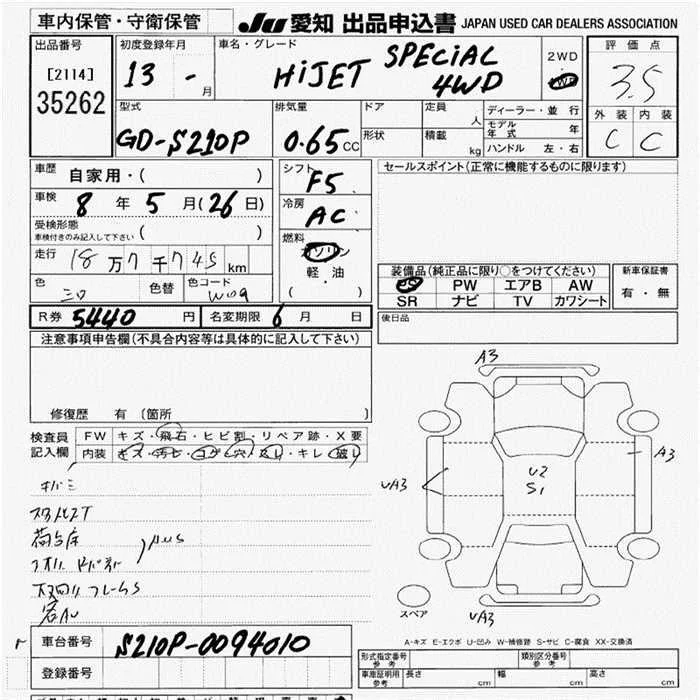 車内保管・守衛保管 JU 愛知 出品申込書 JAPAN USED CAR DEALERS ASSOCIATION
出品番号 初度登録年月 車名・グレード 2WD 評価点
[2114] 13 - 月 HiJET SPECiAL 4WD 4WD 3.5
35262 外装 内装
型式 排気量 ドア 定員 人 ディーラー・並行
GD-S210P 0.65 CC 形状 積載 kg モデル年式 年 C C
ハンドル 左・右
車歴 自家用・( ) シフト F5 セールスポイント(正常に機能するものに限ります)
車検 8年 5月(26日) 冷房 AC
受検形態
車検付きのみ記入して下さい ( )
走行 18万7千745 km 燃料 ガソリン
軽・油
( )
色 色替 色コード W09
装備品(純正品に限り○をつけてください) 新車保証書
PS PW エアB AW 有・無
SR ナビ TV カワシート
R券 5440 円 名変期限 6月 日 後日品
注意事項申告欄(不具合内容等は具体的に記入して下さい)
修復歴 有 (箇所 )
検査員 FW キズ・飛石・ヒビ割・リペア跡・X要
記入欄 内装 キズ・汚ヒ・コゲ・穴・スレ・キレ・破レ
A3
A3
UA3
U2
S1
スペア
UA3
A-キズ E-エクボ U-凹み W-補修跡 S-サビ C-腐食 XX-交換済
車台番号 S210P-0094010
登録番号
形式指定番号 参考 類別区分番号 参考
車庫証明用 参考 長さ cm 幅 cm 高さ cm